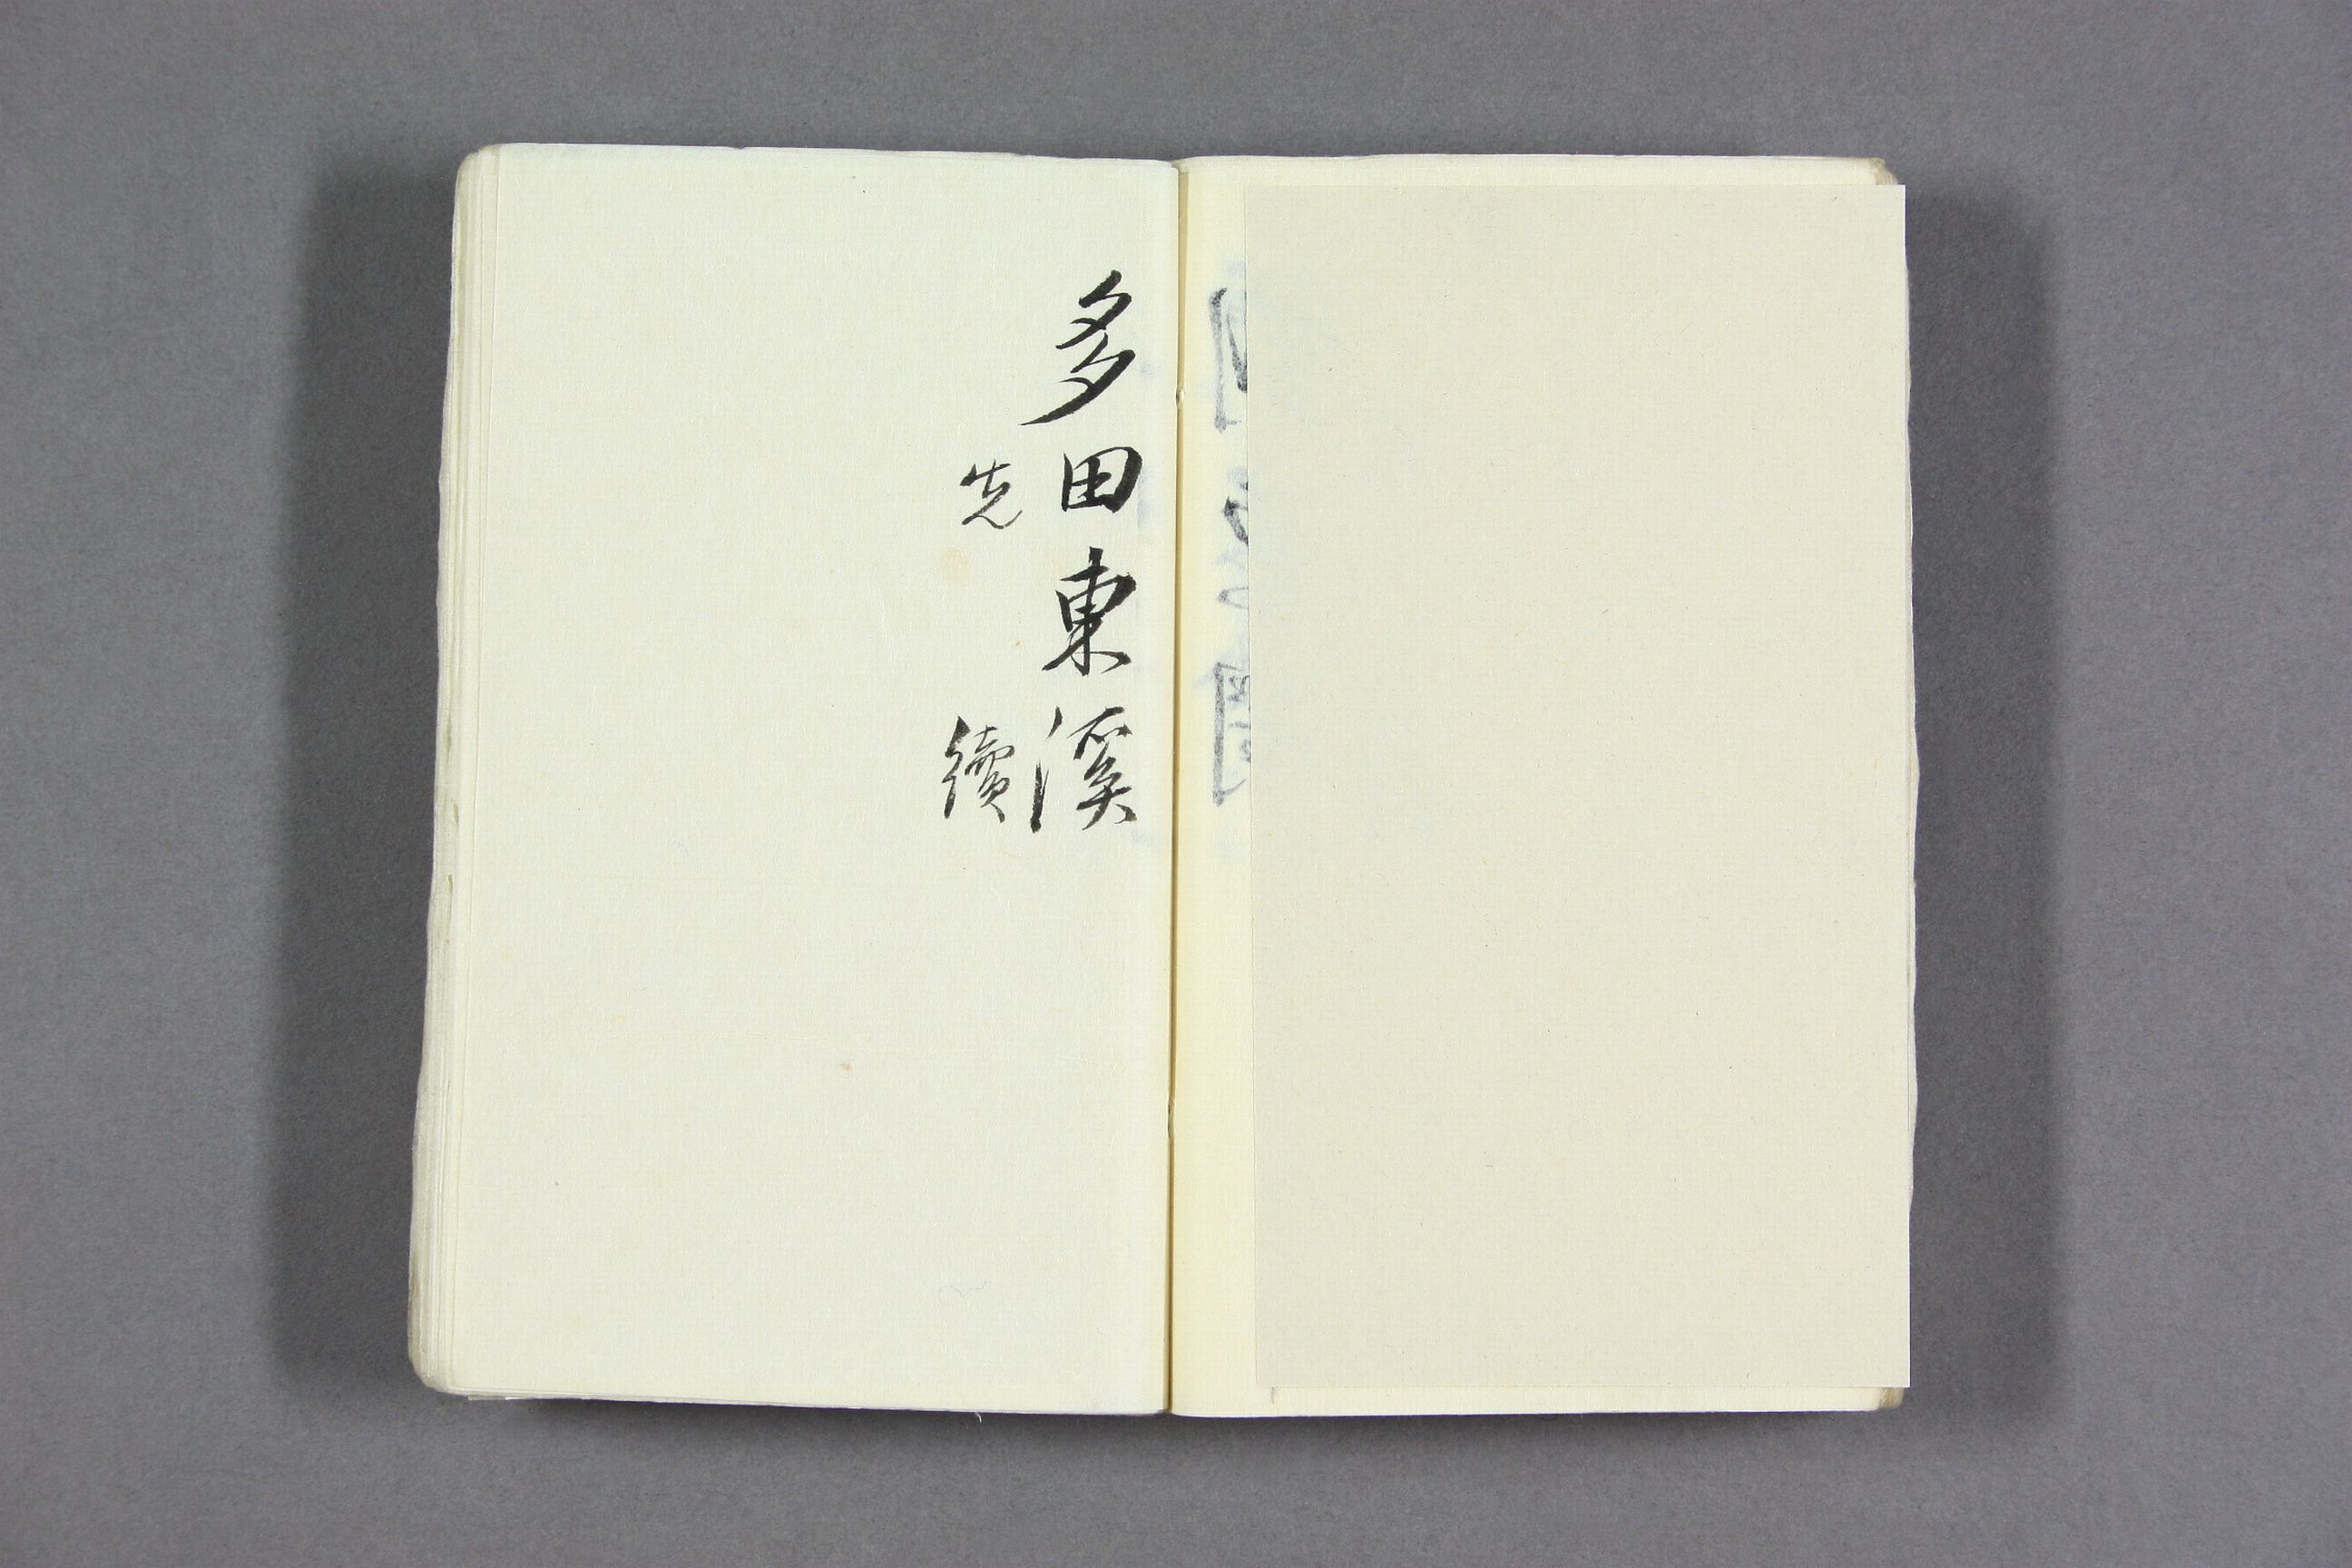 多田東溪
先 續